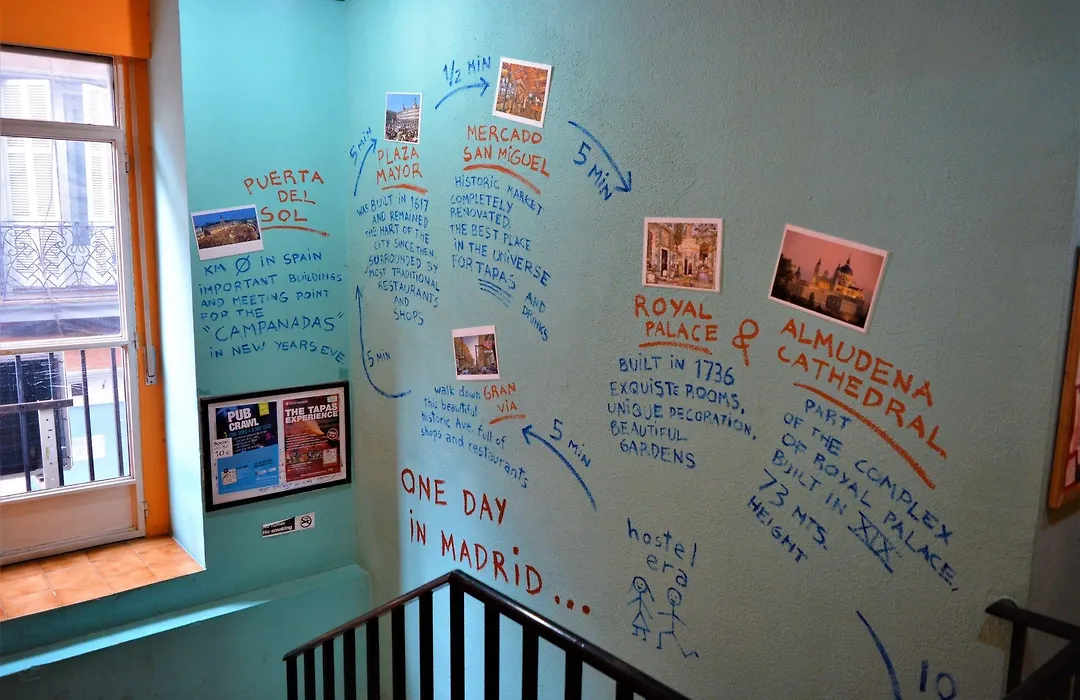 PUERTA
DEL
SOL
KM Ø IN SPAIN
IMPORTANT BUILDINGS
AND MEETING POINT
FOR THE
"CAMPANADAS"
IN NEW YEARS EVE.
5 MIN
PLAZA
MAYOR
WAS BUILT IN 1617
AND REMAINED
THE HART OF THE
CITY SINCE THEN,
SURROUNDED BY
MOST TRADITIONAL
RESTAURANTS
AND
SHOPS
1/2 MIN
MERCADO
SAN MIGUEL
HISTORIC MARKET
COMPLETELY
RENOVATED.
THE BEST PLACE
IN THE UNIVERSE
FOR TAPAS AND
DRINKS
5 MIN
ROYAL
PALACE &
BUILT IN 1736
EXQUISTE ROOMS,
UNIQUE DECORATION,
BEAUTIFUL
GARDENS
ALMUDENA
CATHEDRAL
PART
OF THE COMPLEX
OF ROYAL PALACE,
BUILT IN XIX
73 MTS.
HEIGHT
5 MIN
GRAN
VIA
walk down
this beautiful
historic Ave. full of
shops and restaurants
5 MIN
ONE DAY
IN MADRID...
hostel
era
10
PUB
CRAWL
10€
THE TAPAS
EXPERIENCE
No smoking